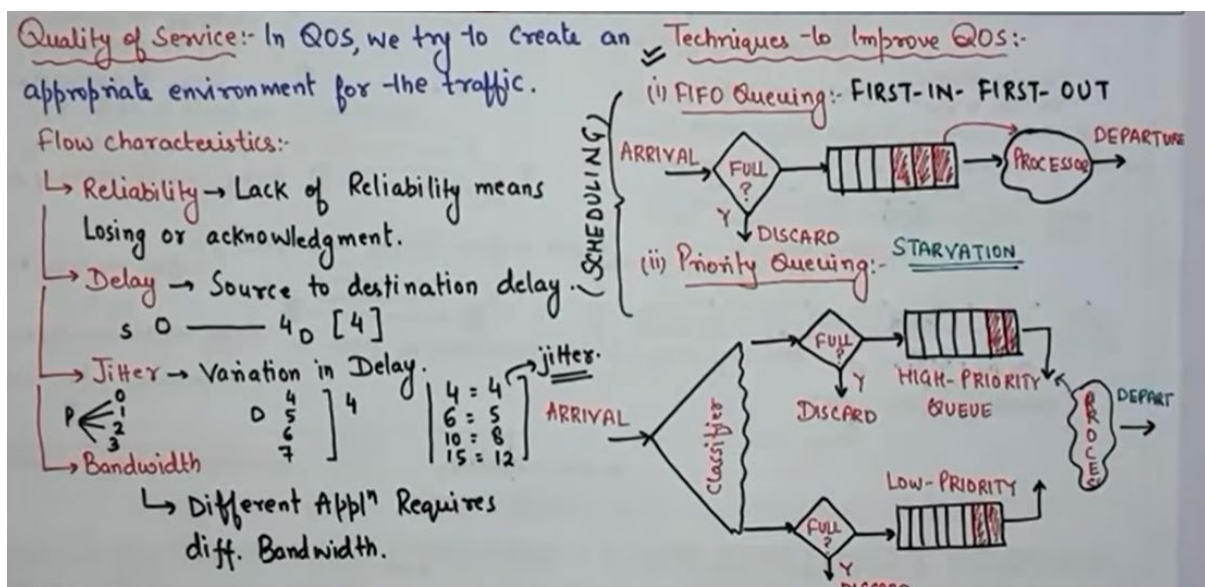 Quality of Service:- In QOS, we try to create an
appropriate environment for the traffic.
Flow characteristics:-
↳ Reliability → Lack of Reliability means
Losing or acknowledgment.
↳ Delay → Source to destination delay.
S 0 —— 4 D [4]
↳ Jitter → Variation in Delay.
P 0 1 2 3
D 4 5 6 7 ] 4
4 = 4 jitter.
6 = 5
10 = 8
15 = 12
↳ Bandwidth
↳ Different Applⁿ Requires
diff. Bandwidth.
Techniques to Improve QOS:-
(SCHEDULING)
(i) FIFO Queuing:- FIRST-IN-FIRST-OUT
ARRIVAL
FULL
?
Y
DISCARD
PROCESSOR
DEPARTURE
(ii) Priority Queuing:- STARVATION
ARRIVAL
Classifier
FULL
?
Y
DISCARD
HIGH-PRIORITY
QUEUE
LOW-PRIORITY
FULL
?
Y
DISCARD
PROCES
DEPART